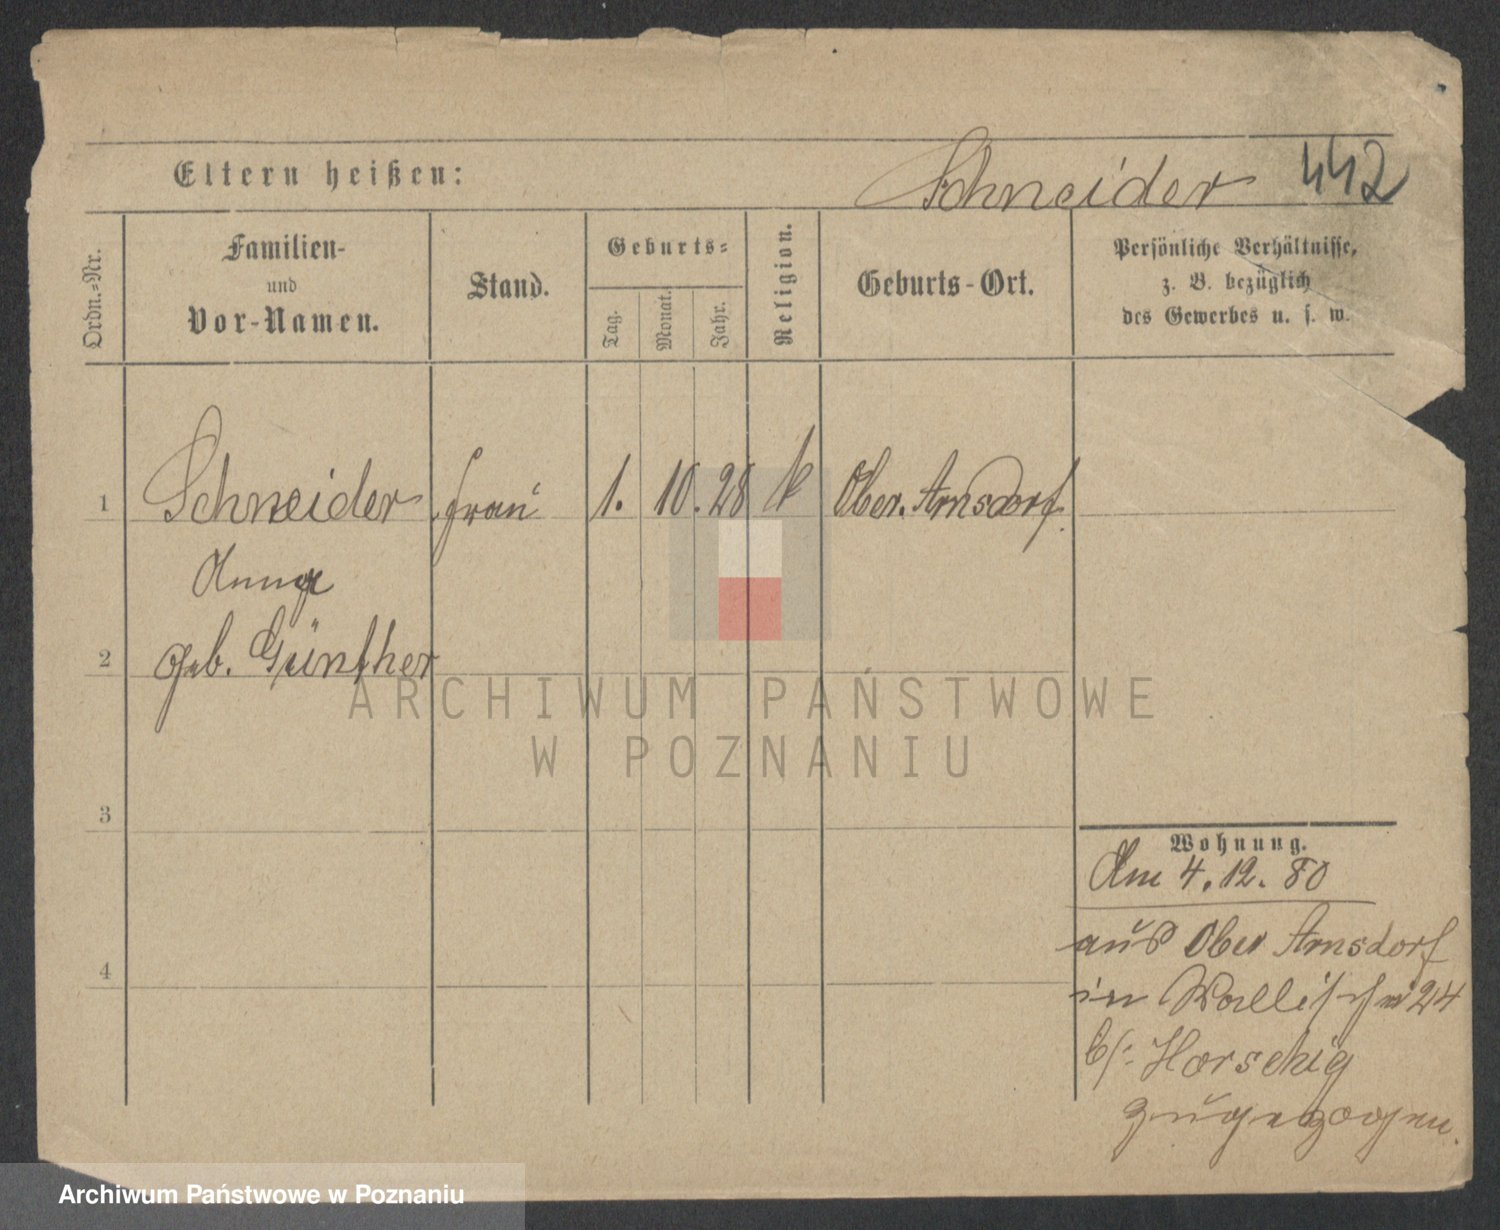 Eltern heißen:
Schneider 442
Ordn.-Nr.
Familien-
und
Vor-Namen.
Stand.
Geburts-
Tag.
Monat.
Jahr.
Religion.
Geburts-Ort.
Persönliche Verhältnisse,
z. B. bezüglich
des Gewerbes u. s. w.
1 Schneider Frau 1. 10. 28 k Ober. Arnsdorf.
2 geb. Günther
3
4
Wohnung.
Am 4. 12. 80
aus Ober Arnsdorf
in Wallischei 24
b/: Horschig
zugezogen.
ARCHIWUM PAŃSTWOWE
W POZNANIU
Archiwum Państwowe w Poznaniu